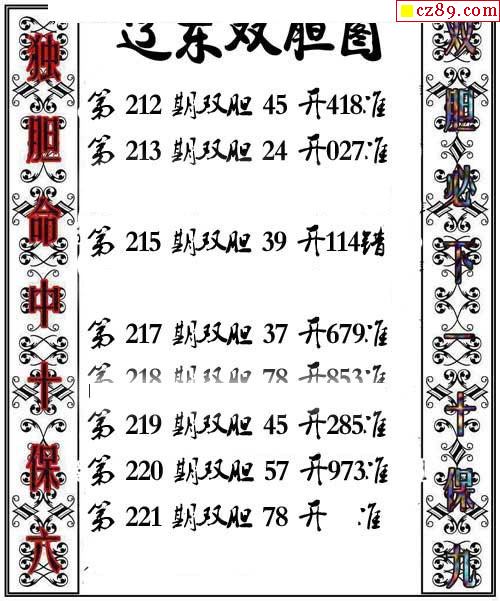 cz89.com
辽东双胆图
独胆命中十保六
第 212 期双胆 45 开418准
第 213 期双胆 24 开027准
第 215 期双胆 39 开114错
第 217 期双胆 37 开679准
第 218 期双胆 78 开853准
第 219 期双胆 45 开285准
第 220 期双胆 57 开973准
第 221 期双胆 78 开 准
双胆必下一十保九